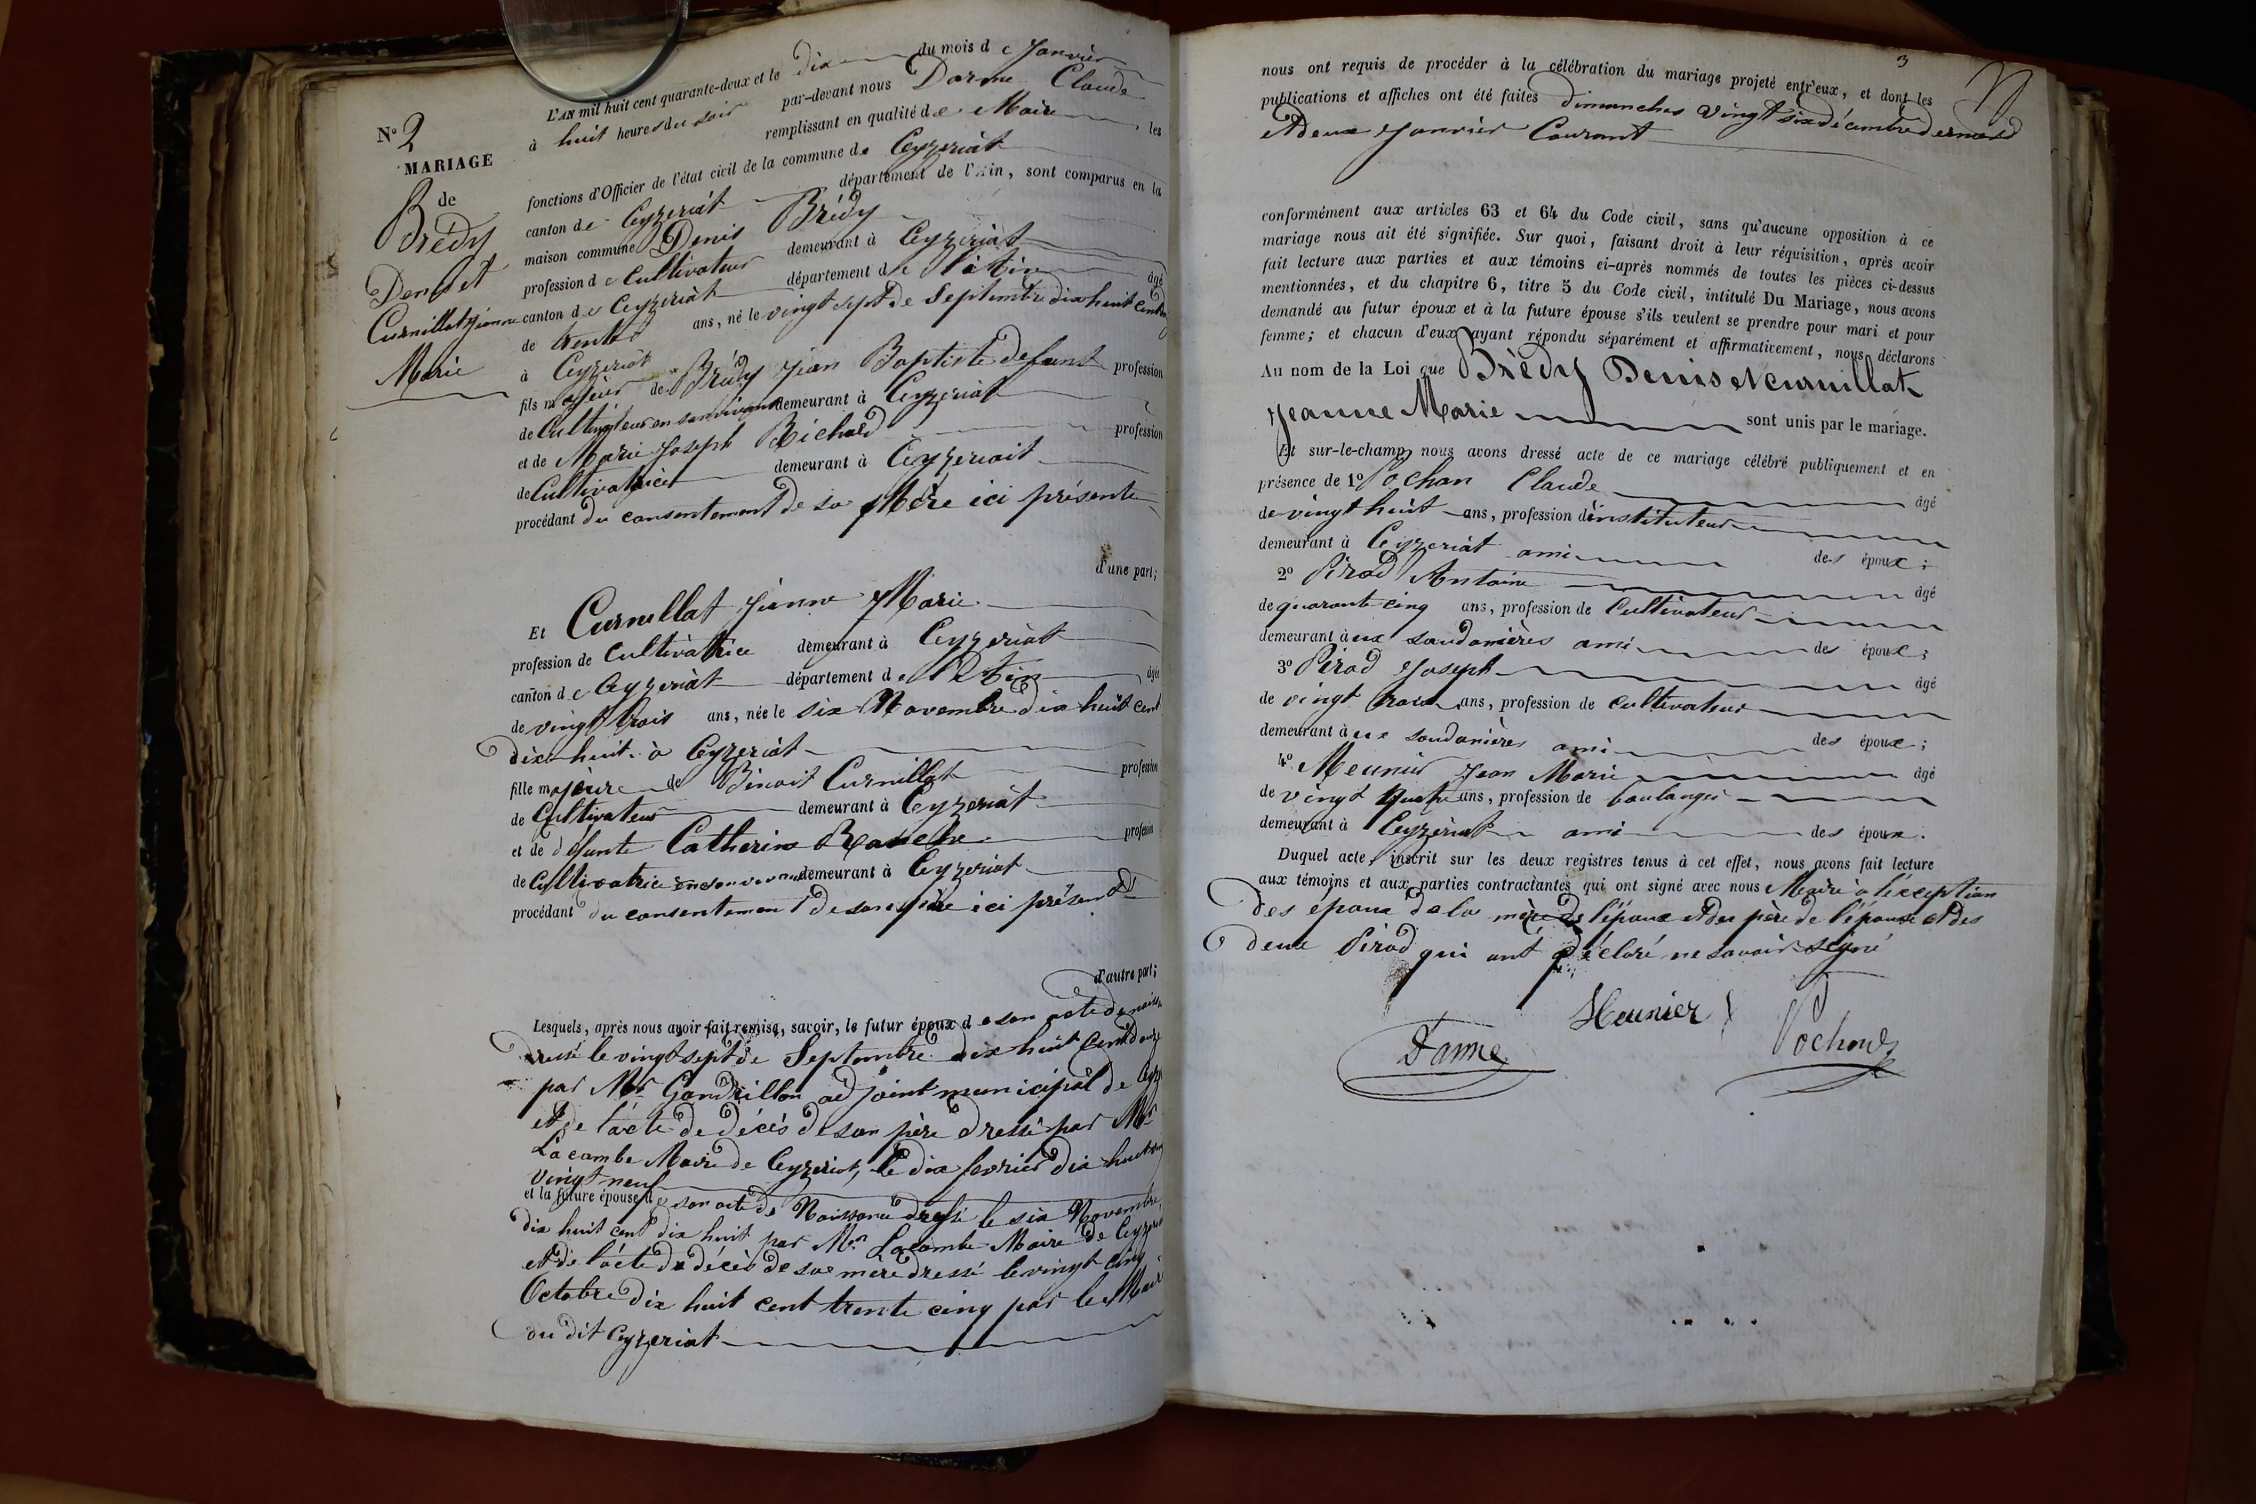 N° 2
MARIAGE
de
Brédy
Denis et
Curnillat Jeanne
Marie
L'AN mil huit cent quarante-deux et le dix du mois de Janvier
à huit heures du soir par-devant nous Darme Claude
remplissant en qualité de Maire les
fonctions d'Officier de l'état civil de la commune de Ceyzeriat
canton de Ceyzeriat département de l'Ain, sont comparus en la
maison commune Denis Brédy
profession de Cultivateur demeurant à Ceyzeriat
canton de Ceyzeriat département de l'Ain âgé
de trente ans, né le vingt sept de Septembre dix huit cent
à Ceyzeriat
fils majeur de Brédy Jean Baptiste defunt profession
de Cultivateur en son vivant demeurant à Ceyzeriat
et de Marie Joseph Richard profession
de Cultivatrice demeurant à Ceyzeriait
procédant du consentement de sa Mère ici présente
d'une part;
Et Curnillat Jeanne Marie
profession de Cultivatrice demeurant à Ceyzeriat
canton de Ceyzeriat département de l'Ain âgée
de vingt trois ans, née le six Novembre dix huit cent
dix huit à Ceyzeriat
fille majeure de Benoit Curnillat profession
de Cultivateur demeurant à Ceyzeriat
et de défunte Catherine profession
de Cultivatrice en son vivant demeurant à Ceyzeriat
procédant du consentement de son père ici présent
d'autre part;
Lesquels, après nous avoir fait remise, savoir, le futur époux de son acte de naiss
dressé le vingt sept de Septembre dix huit cent douze
par Mr Gandrillon adjoint municipal de Ceyz
et de l'acte de décès de son père dressé par Mr
Lacombe Maire de Ceyzeriat, le dix fevrier dix huit cent
vingt neuf
et la future épouse de son acte de Naissance dressé le six Novembre
dix huit cent dix huit par Mr Lacombe Maire de Ceyzeriat
et de l'acte de décès de sa mère dressé le vingt cinq
Octobre dix huit cent trente cinq par le Maire
du dit Ceyzeriat
3
nous ont requis de procéder à la célébration du mariage projeté entr'eux, et dont les
publications et affiches ont été faites dimanches vingt six décembre dernier
et deux Janvier Courant
conformément aux articles 63 et 64 du Code civil, sans qu'aucune opposition à ce
mariage nous ait été signifiée. Sur quoi, faisant droit à leur réquisition, après avoir
fait lecture aux parties et aux témoins ci-après nommés de toutes les pièces ci-dessus
mentionnées, et du chapitre 6, titre 5 du Code civil, intitulé Du Mariage, nous avons
demandé au futur époux et à la future épouse s'ils veulent se prendre pour mari et pour
femme; et chacun d'eux ayant répondu séparément et affirmativement, nous déclarons
Au nom de la Loi que Brédy Denis et Curnillat
Jeanne Marie sont unis par le mariage.
Et sur-le-champ nous avons dressé acte de ce mariage célébré publiquement et en
présence de 1° Pochon Claude âgé
de vingt huit ans, profession d'instituteur
demeurant à Ceyzeriat ami des époux;
2° Pirod Antoine âgé
de quarante cinq ans, profession de Cultivateur
demeurant aux soudanières ami des époux;
3° Pirod Joseph âgé
de vingt trois ans, profession de cultivateur
demeurant aux soudanières ami des époux;
4° Meunier Jean Marie âgé
de vingt quatre ans, profession de boulanger
demeurant à Ceyzeriat ami des époux.
Duquel acte, inscrit sur les deux registres tenus à cet effet, nous avons fait lecture
aux témoins et aux parties contractantes qui ont signé avec nous Maire à l'éxception
des époux de la mère de l'époux et du père de l'épouse et des
deux Pirod qui ont déclaré ne savoir signé
Meunier
Darme
Pochon